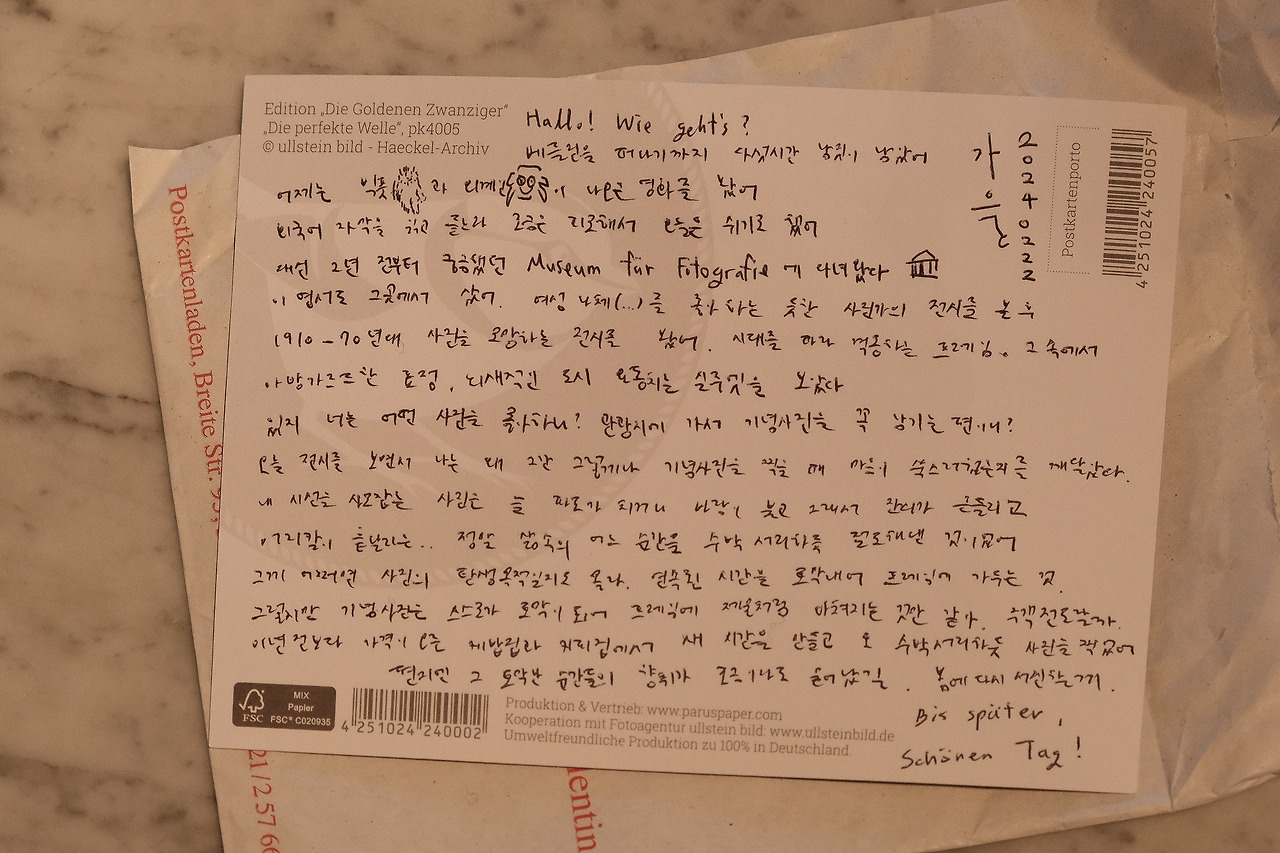 Edition „Die Goldenen Zwanziger“
„Die perfekte Welle“, pk4005
© ullstein bild - Haeckel-Archiv
Hallo! Wie geht's?
베를린을 떠나기까지 다섯시간 남짓이 남았어
어제는 빅풋과 외계인이 나오는 영화를 봤어
외국어 자막을 읽고 들느라 조금은 피로해서 오늘은 쉬기로 했어
대신 2년 전부터 궁금했던 Museum für Fotografie에 다녀왔다
이 엽서도 그곳에서 샀어. 여성 나체(...)를 좋아하는 듯한 사진가의 전시를 본 후
1910-70년대 사진을 조망하는 전시를 봤어. 시대를 따라 적응하는 프레임. 그 속에서
아방가르드한 표정, 뇌쇄적인 도시 요동치는 실루엣을 보았다
있지 너는 어떤 사진을 좋아하니? 관광지에 가서 기념사진을 꼭 남기는 편이니?
오늘 전시를 보면서 나는 왜 그간 그렇게나 기념사진을 찍을 때 마음이 쑥스러웠는지를 깨달았다.
내 시선을 사로잡는 사진은 늘 파도가 치거나 바람이 불고 그래서 잔디가 흔들리고
머리칼이 흩날리는.. 정말 삶속의 어느 순간을 수박 서리하듯 도려낸 것이었어
그게 어쩌면 사진의 탄생목적일지도 몰라. 연속된 시간을 토막내어 프레임에 가두는 것.
그렇지만 기념사진은 스스로가 토막이 되어 프레임에 제물처럼 바쳐지는 것만 같아. 주객전도랄까.
이년 전보다 가격이 오른 케밥집과 커피집에서 새 시간을 만들고 또 수박서리하듯 사진을 찍었어
편지엔 그 토막난 순간들의 향취가 조금이나마 묻어났길. 봄에 다시 서신할게.
Bis später,
Schönen Tag!
가을
20240222
Postkartenporto
4 251024 240057
MIX
Papier
FSC
FSC® C020935
4 251024 240002
Produktion & Vertrieb: www.paruspaper.com
Kooperation mit Fotoagentur ullstein bild: www.ullsteinbild.de
Umweltfreundliche Produktion zu 100% in Deutschland.
Postkartenladen, Breite Str. 93,
21/2 57 66